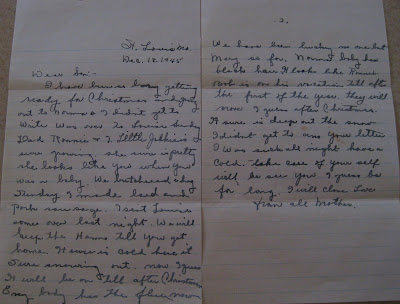 St. Louis Mo.
Dec. 18. 1945
Dear Son:-
I have been so busy getting
ready for Christmas and going
out to I didn't get to
write was over to Sunday
Dad & I. Little is
sure growing she sure is pretty
she looks like you when you
was a baby. We butchered a hog
Thursday I made head and
Pork sausage. I sent Louis
some over last night. We will
keep the Hams till you get
home. It sure is cold here it
sure snowing out. now I guess
it will be on till after Christmas
Every body has the flue now
2.
We have been lucky no one but
Mary so far. baby has
black hair It looks like
is on his vacation till after
the first of the year. They will
move I guess after Christmas.
It sure is deep out the snow
I didn't get to your letter
I was sick all night have a
cold. Take care of your self
will be see you I guess be
for long. I will close Love
from all Mother.